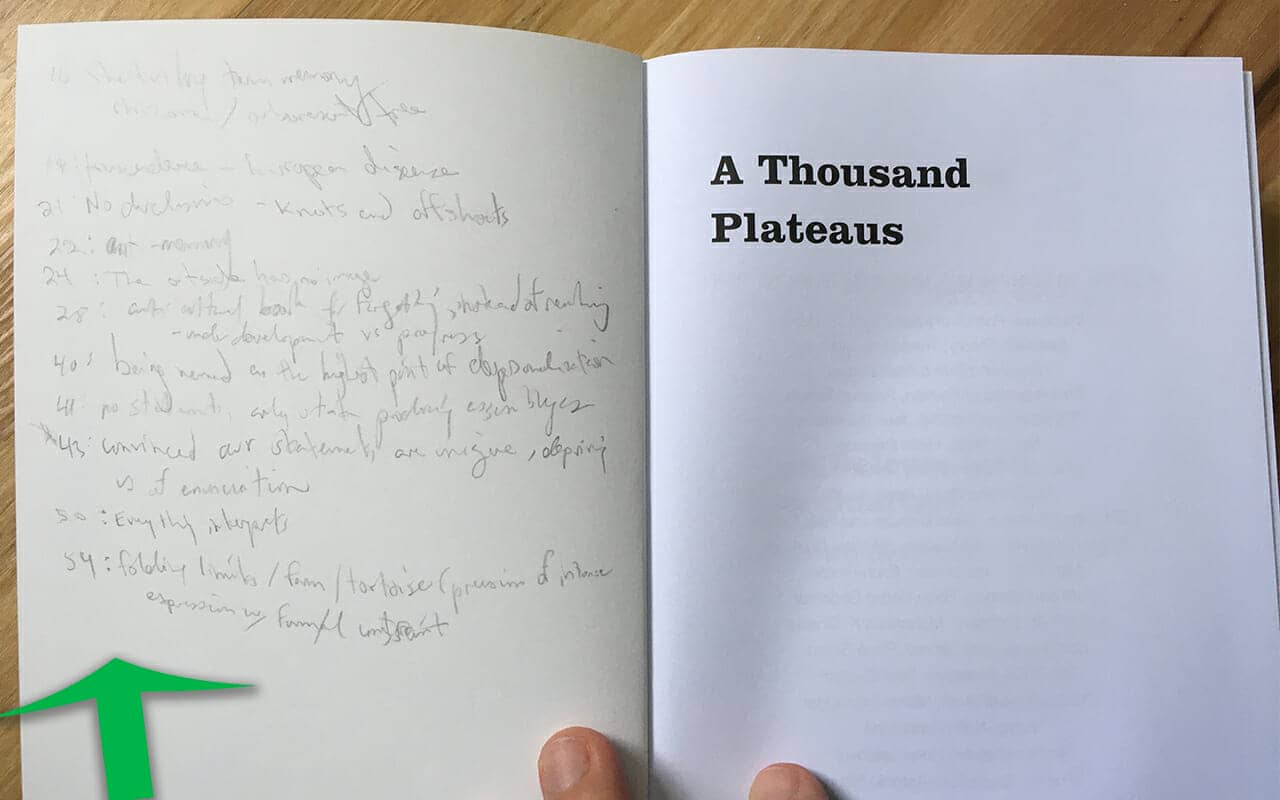 16 Short vs long term memory
rhizome / arborescent tree
18: transcendence - European disease
21: No dualisms - Knots and offshoots
22: -memory
24: The outside has no image
28: anti cultural book of forgetting instead of remembering
- underdevelopment vs progress
40: being named as the highest point of depersonalization
41: no statements, only statement producing assemblages
43: convinced our statements are unique, depriving
us of enunciation
50: Everything interprets
54: folding limits / form / tortoise (precision of intense
expression w/ formal constraint
A Thousand
Plateaus